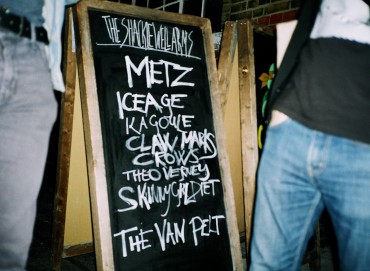 THE SHACKLEWELL ARMS
METZ
ICEAGE
KAGOULE
CLAW MARKS
CROWS
THEO VERNEY
SKINNY GIRL DIET
THE VAN PELT